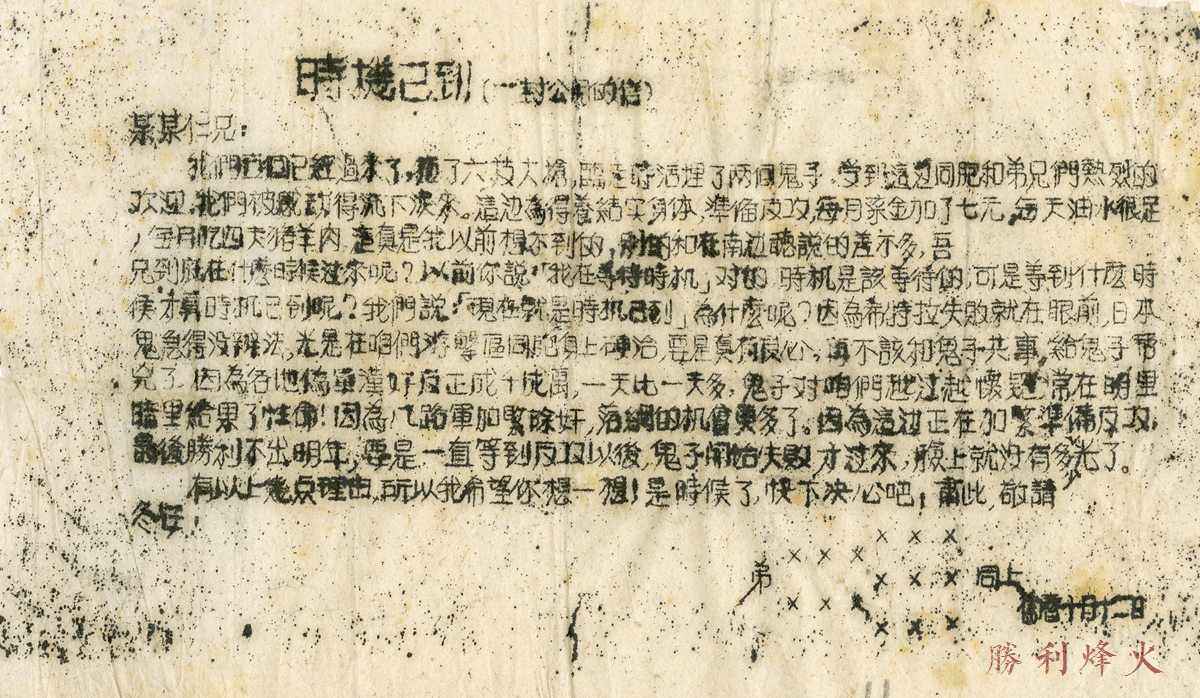 時機已到(一封公開的信)
某某仁兄:
我們兩個已經過來了,拖了六枝大槍,臨走時活埋了两個鬼子,受到這边同胞和弟兄們熱烈的
欢迎,我們被感动得流下淚來。這边為得養結实身体,準備反攻,每月薪金加了七元,每天油水很足
,每月吃四次猪羊肉,這真是我以前想不到的,別的和在南边聽說的差不多,吾
兄到底在什麽時候过来呢?以前你說「我在等待時机」对的,時机是該等待的,可是等到什麽時
候才算時机已到呢?我們說「現在就是時机已到」為什麽呢?因為希特拉失敗就在眼前,日本
鬼急得没辦法,光是在咱們游擊區同胞頭上,要是真有良心,再不該和鬼子共事,給鬼子帮
兇了,因為各地偽軍漢奸反正成千成萬,一天比一天多,鬼子对咱們越江越懷疑,常在明里
暗里結果了性命!因為八路軍加緊除奸,落網的机會更多了。因為這边正在加緊準備反攻,
最後勝利不出明年,要是一直等到反攻以後,鬼子開始失敗才过來,臉上就没有多光了。
有以上幾点理由,所以我希望你想一想!是時候了,快下决心吧!肅此,敬請
冬安!
弟
×××
×××
×××
×××
×××
同上
舊曆十月十二日
勝利烽火